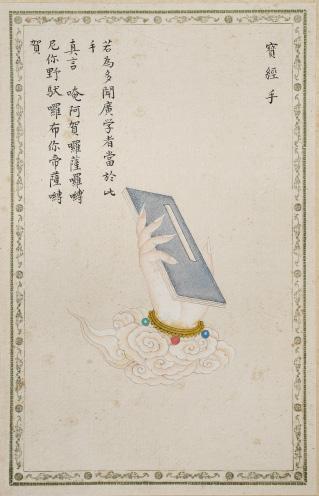 寶經手
若為多聞廣学者當於此
手
真言 唵阿賀囉薩囉嚩
尼你野馱囉布你帝薩嚩
賀